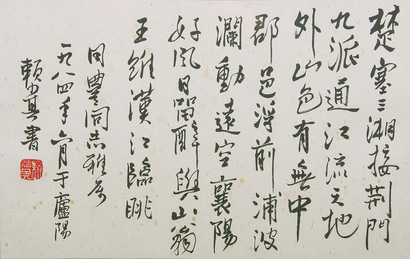 楚塞三湘接荆門
九派通江流天地
外山色有無中
郡邑浮前浦波
瀾動遠空襄陽
好風日留醉與山翁
王維漢江臨眺
同豐同志雅属
一九八四年六月于廬陽
賴少其書